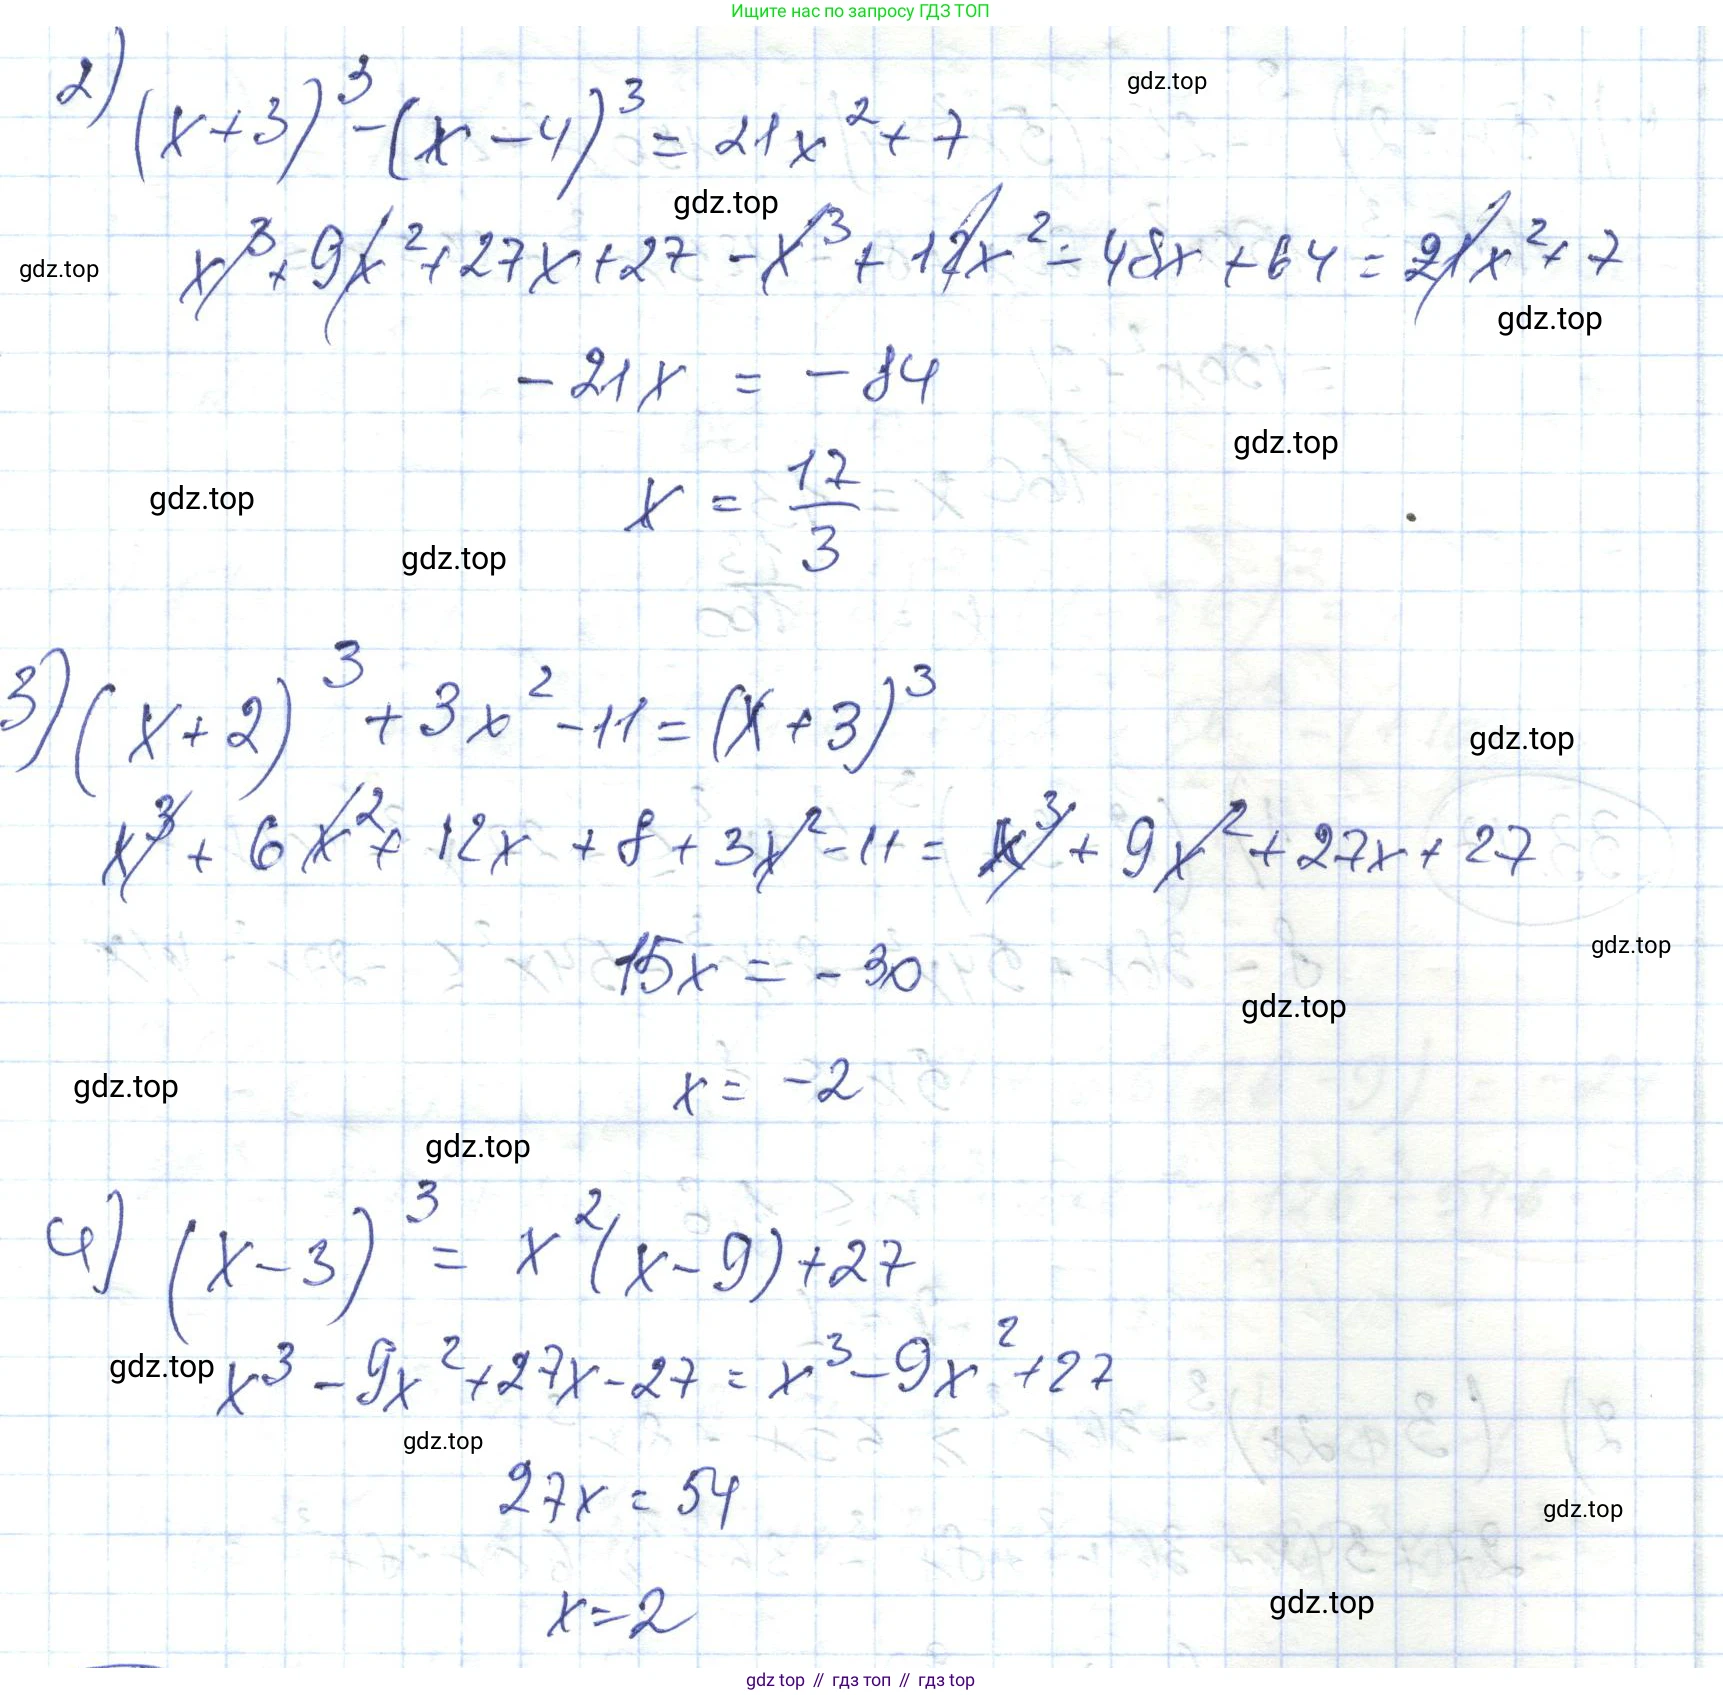 Ищите нас по запросу ГДЗ ТОП
gdz.top
2) (x+3)³-(x-4)³=21x²+7
gdz.top
gdz.top
x³+9x²+27x+27-x³+12x²-48x+64=21x²+7
gdz.top
-21x = -84
gdz.top
x = 17/3
gdz.top
gdz.top
3) (x+2)³+3x²-11=(x+3)³
gdz.top
x³+6x²+12x+8+3x²-11=x³+9x²+27x+27
gdz.top
15x = -30
gdz.top
gdz.top
x = -2
gdz.top
4) (x-3)³=x²(x-9)+27
gdz.top
x³-9x²+27x-27=x³-9x²+27
gdz.top
27x=54
gdz.top
gdz.top
x=2
gdz top // гдз топ // гдз top